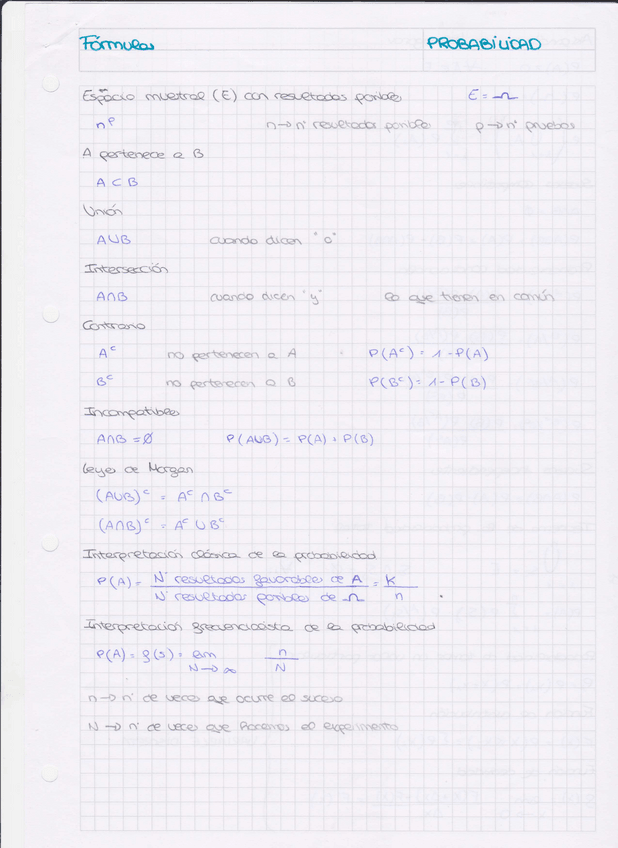 Fórmulas PROBABILIDAD
Espacio muestral (E) con resultados posibles E = Ω
n^p n → nº resultados posibles p → nº pruebas
A pertenece a B
A ⊂ B
Unión
A∪B cuando dicen "o"
Intersección
A∩B cuando dicen "y" lo que tienen en común
Contrario
A^c no pertenecen a A P(A^c) = 1 - P(A)
B^c no pertenecen a B P(B^c) = 1 - P(B)
Incompatibles
A∩B = Ø P(A∪B) = P(A) + P(B)
Leyes de Morgan
(A∪B)^c = A^c ∩ B^c
(A∩B)^c = A^c ∪ B^c
Interpretación clásica de la probabilidad
P(A) = Nº resultados favorables de A / Nº resultados posibles de Ω = K / n
Interpretación frecuencialista de la probabilidad
P(A) = f(s) = lim N→∞ n / N
n → nº de veces que ocurre el suceso
N → nº de veces que hacemos el experimento